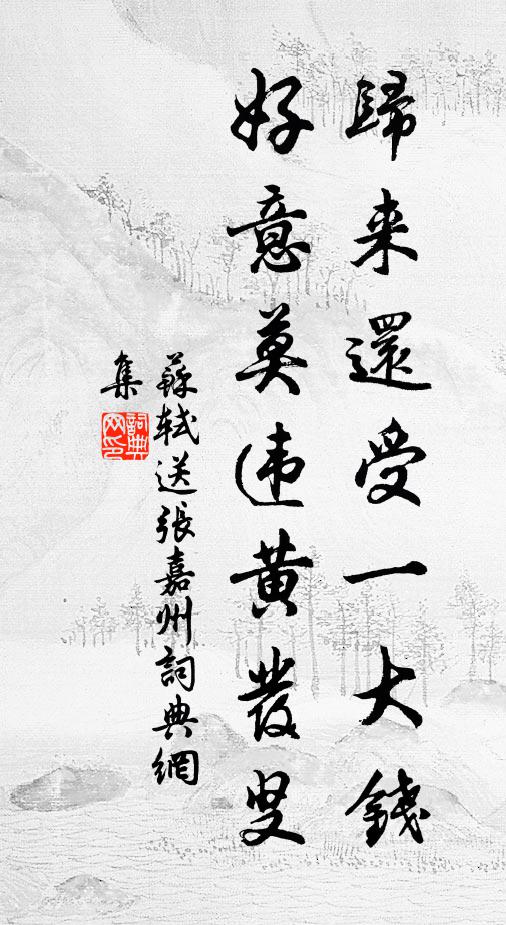 歸来還受一大錢
好意莫违黄發叟
蘇軾送張嘉州詞典網
集
詞典
网印